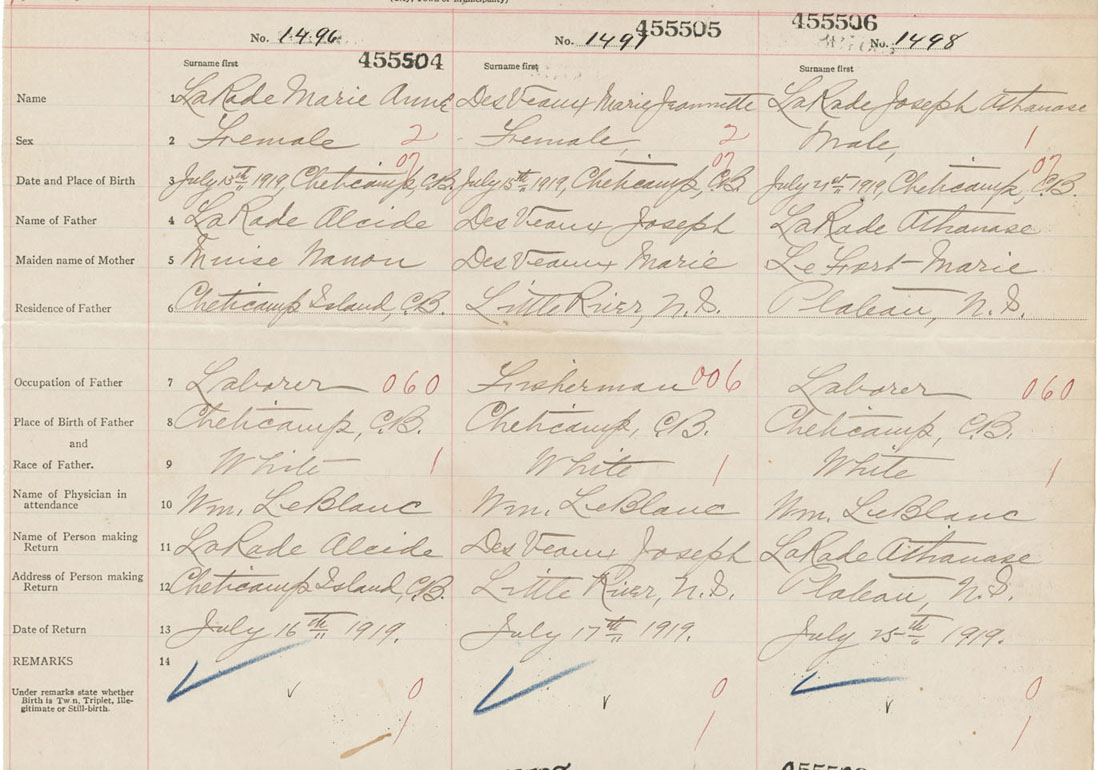 (City, Town or Municipality)
455504 455505 455506
No. 1496 No. 1497 No. 1498
Surname first Surname first Surname first
Name 1 LaRade Marie Anne DesVeaux Marie Jeannette LaRade Joseph Athanase
Sex 2 Female 2 Female, 2 Male, 1
07 07 07
Date and Place of Birth 3 July 15th, 1919, Cheticamp, C.B. July 15th, 1919, Cheticamp, C.B. July 21st, 1919, Cheticamp, C.B.
Name of Father 4 LaRade Alcide DesVeaux Joseph LaRade Athanase
Maiden name of Mother 5 Muise Nanon DesVeaux Marie LeFort Marie
Residence of Father 6 Cheticamp Island, C.B. Little River, N.S. Plateau, N.S.
Occupation of Father 7 Laborer 060 Fisherman 006 Laborer 060
Place of Birth of Father 8 Cheticamp, C.B. Cheticamp, C.B. Cheticamp, C.B.
and
Race of Father. 9 White 1 White 1 White 1
Name of Physician in attendance 10 Wm. LeBlanc Wm. LeBlanc Wm. LeBlanc
Name of Person making Return 11 LaRade Alcide DesVeaux Joseph LaRade Athanase
Address of Person making Return 12 Cheticamp Island, C.B. Little River, N.S. Plateau, N.S.
Date of Return 13 July 16th 1919. July 17th 1919. July 25th 1919.
REMARKS 14
Under remarks state whether Birth is Twin, Triplet, Ille-
gitimate or Still-birth.
0 0 0
1 1 1